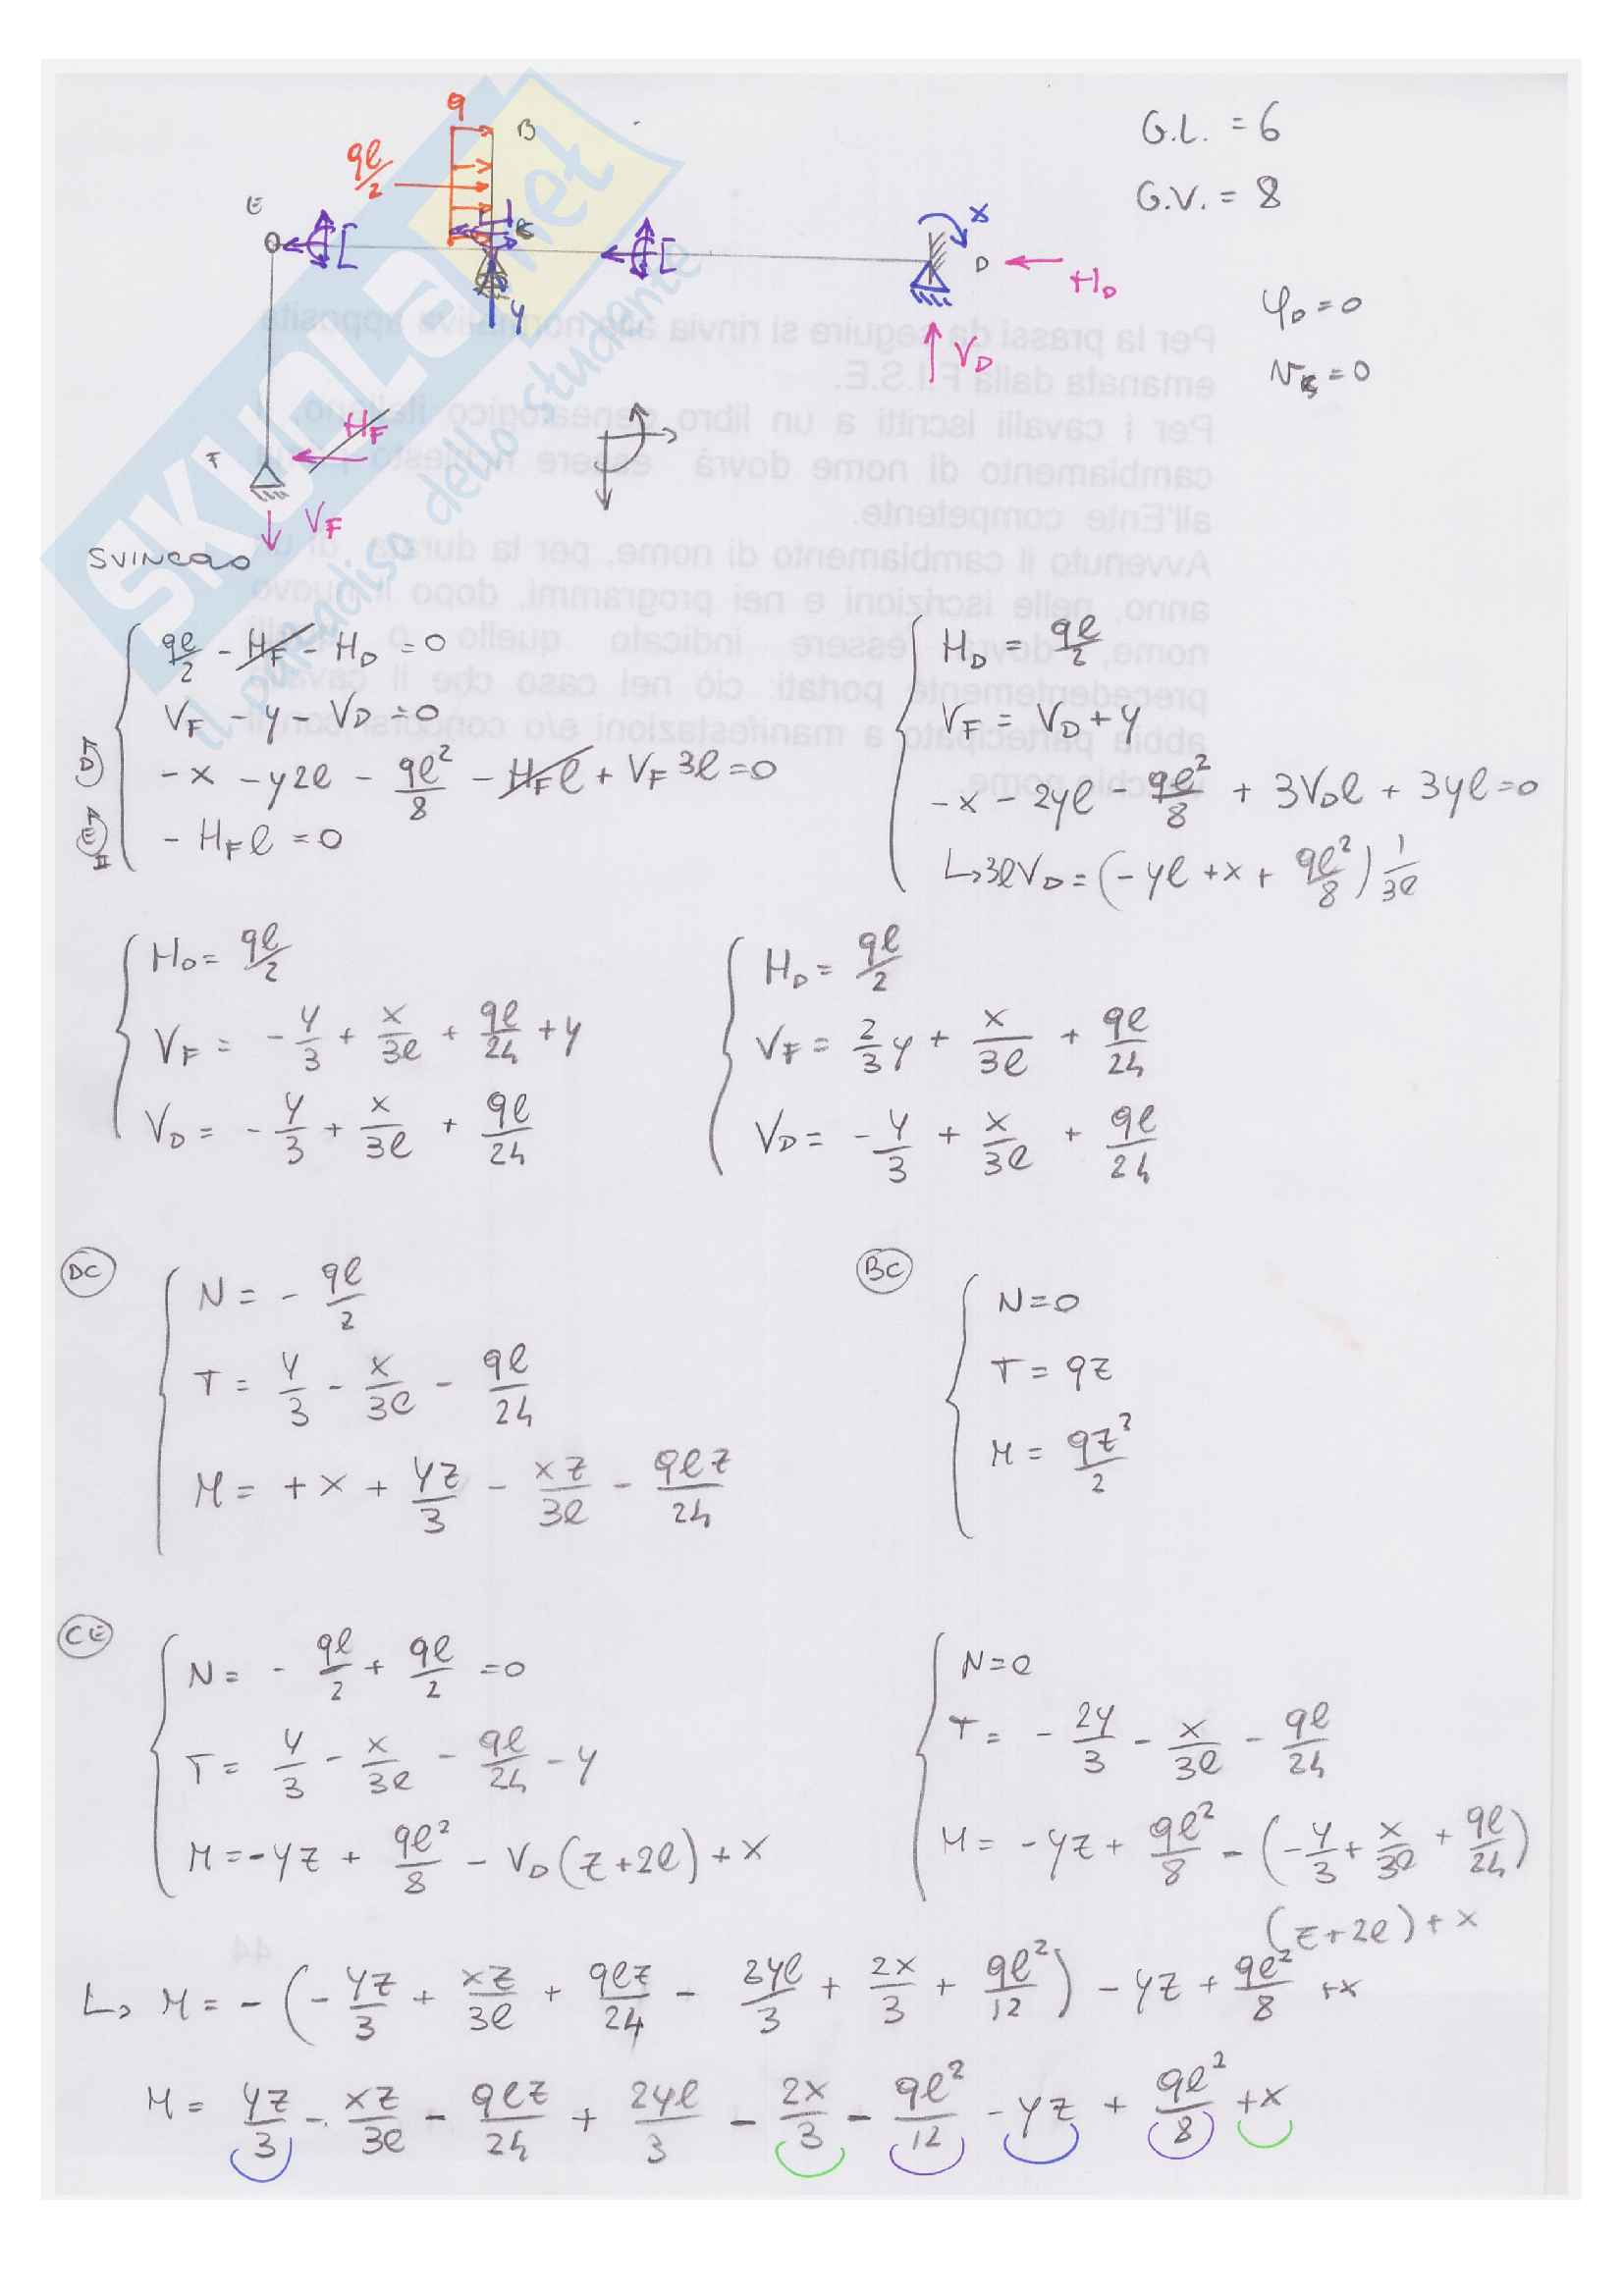 G.L. = 6
G.V. = 8
q
B
qℓ/2
E
C
X
D
H_D
Y
V_D
φ_D = 0
V_C = 0
H_F
F
V_F
SVINCOLO
SKUOLA.net
il paradiso dello studente
Per la prassi da seguire si rinvia alla normativa apposita
emanata dalla F.I.S.E.
Per i cavalli iscritti a un libro genealogico italiano,
cambiamento di nome dovrà essere richiesto
all'Ente competente.
Avvenuto il cambiamento di nome, per la durata di un
anno, nelle iscrizioni e nei programmi, dopo il nuovo
nome, dovrà essere indicato quello
precedentemente portato; ciò nel caso che il cavallo
abbia partecipato a manifestazioni e/o concorsi con il
vecchio nome.
qℓ/2 - H_F - H_D = 0
V_F - y - V_D = 0
D -x - y2ℓ - qℓ²/8 - H_Fℓ + V_F 3ℓ = 0
E II - H_F ℓ = 0
H_D = qℓ/2
V_F = V_D + y
-x - 2yℓ - qℓ²/8 + 3V_Dℓ + 3yℓ = 0
↳ 3ℓV_D = (-yℓ + x + qℓ²/8) 1/3ℓ
H_D = qℓ/2
V_F = -y/3 + x/3ℓ + qℓ/24 + y
V_D = -y/3 + x/3ℓ + qℓ/24
H_D = qℓ/2
V_F = 2/3 y + x/3ℓ + qℓ/24
V_D = -y/3 + x/3ℓ + qℓ/24
DC
N = - qℓ/2
T = y/3 - x/3ℓ - qℓ/24
M = +x + yz/3 - xz/3ℓ - qℓz/24
BC
N = 0
T = qz
M = qz²/2
CE
N = - qℓ/2 + qℓ/2 = 0
T = y/3 - x/3ℓ - qℓ/24 - y
M = -yz + qℓ²/8 - V_D(z+2ℓ) + x
N = 0
T = - 2y/3 - x/3ℓ - qℓ/24
M = -yz + qℓ²/8 - (-y/3 + x/3ℓ + qℓ/24)
(z+2ℓ) + x
44
↳ M = -(-yz/3 + xz/3ℓ + qℓz/24 - 2yℓ/3 + 2x/3 + qℓ²/12) - yz + qℓ²/8 + x
M = yz/3 - xz/3ℓ - qℓz/24 + 2yℓ/3 - 2x/3 - qℓ²/12 - yz + qℓ²/8 + x